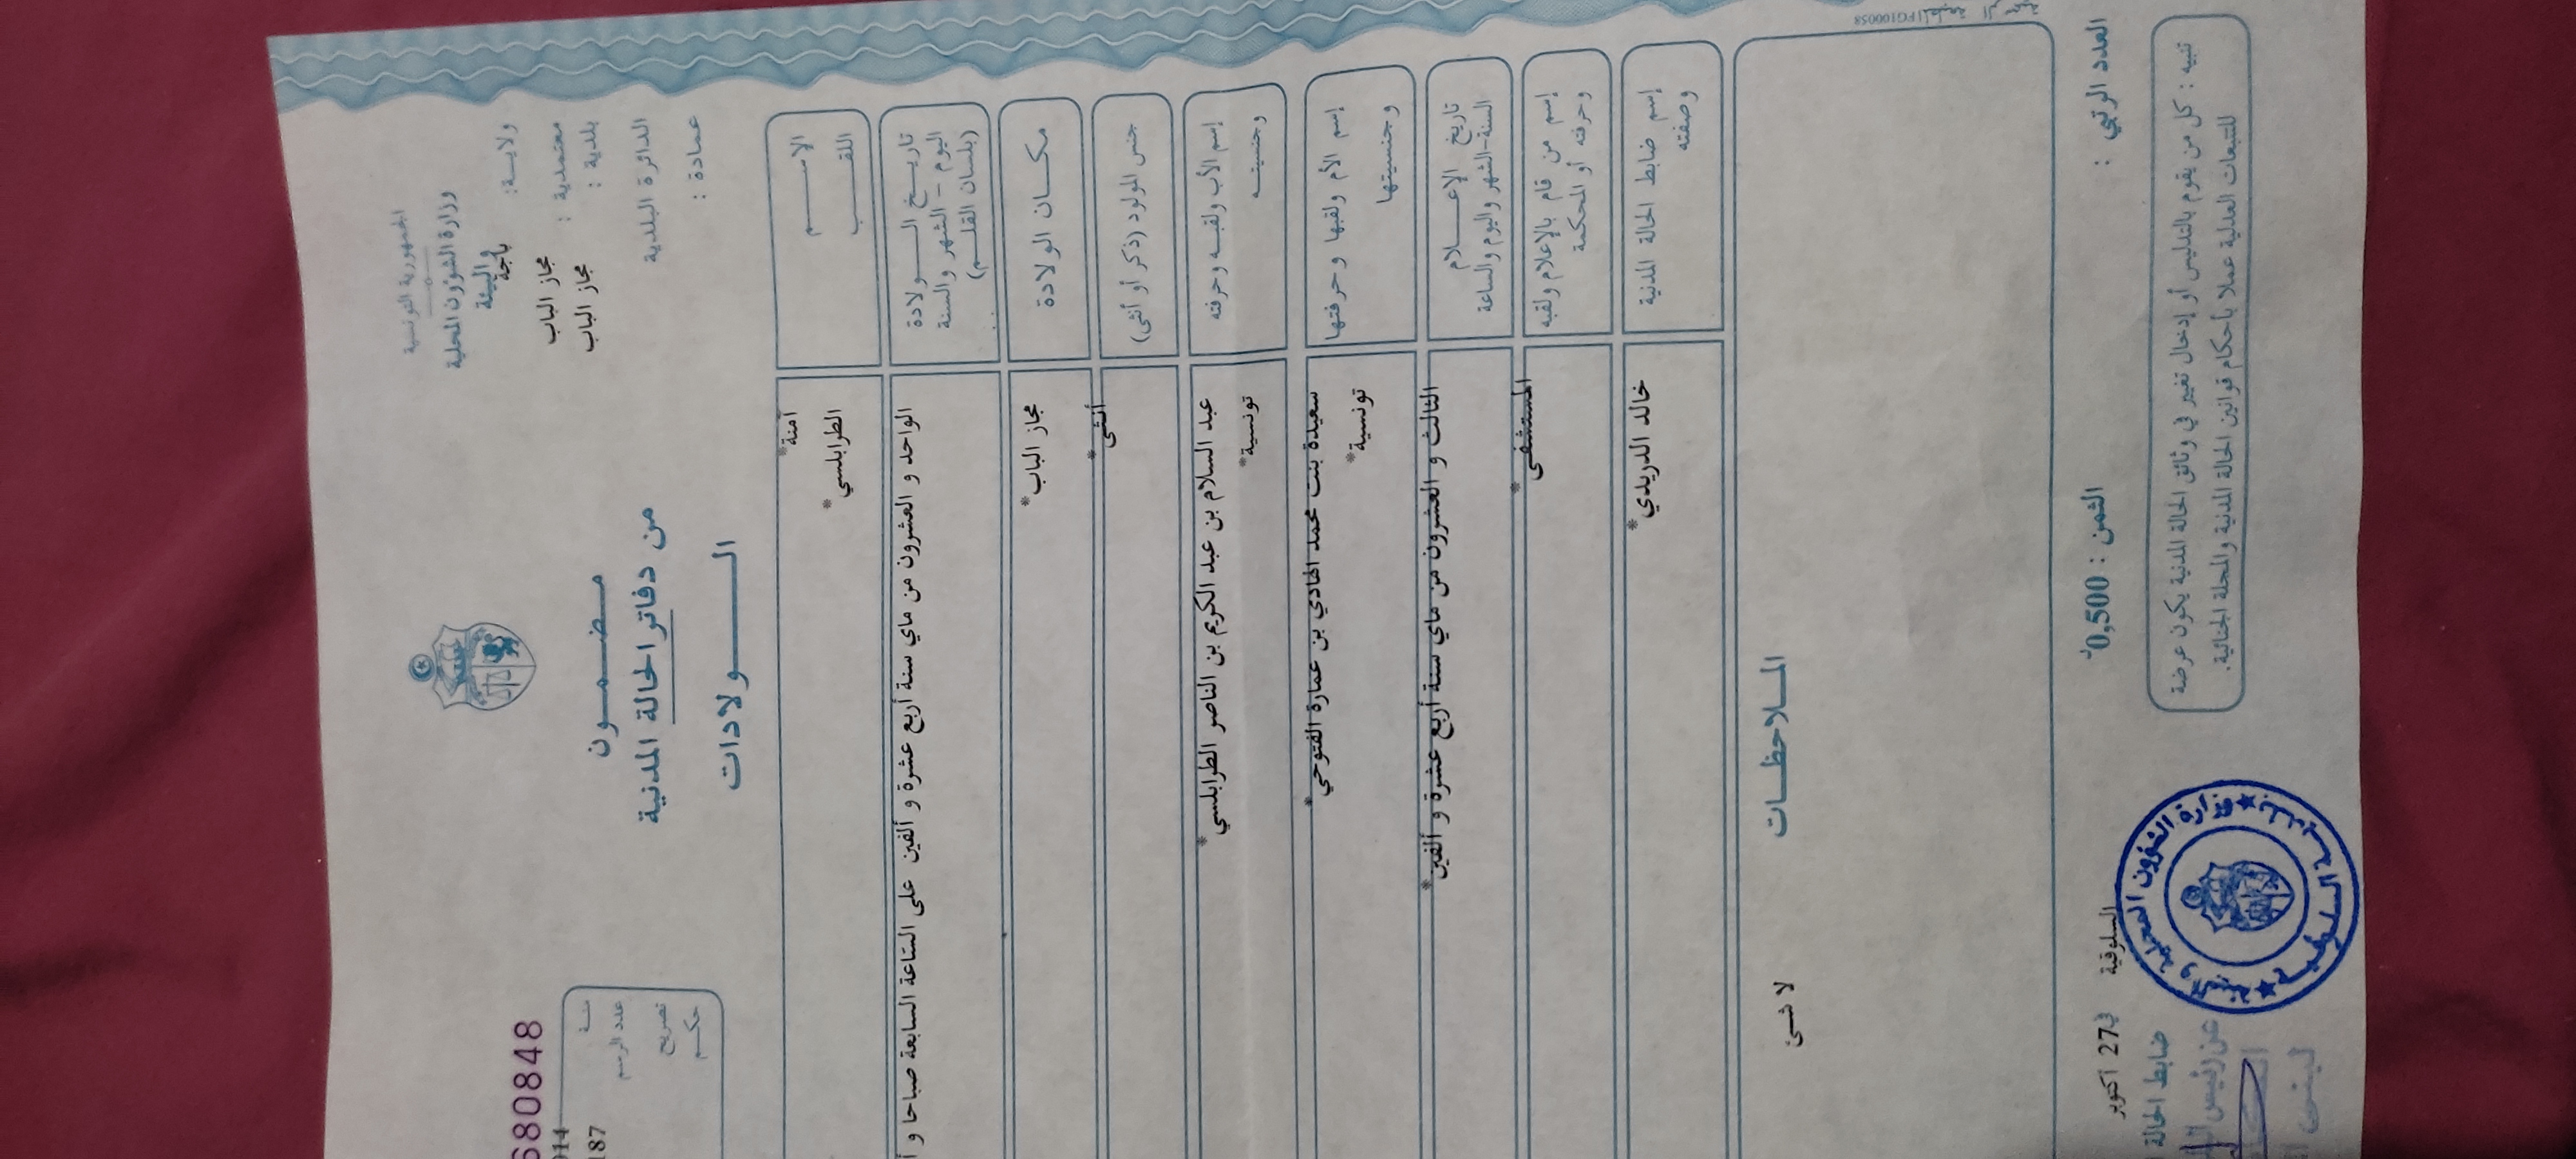 الجمهورية التونسية
وزارة الشؤون المحلية
والبيئة
ولايـــة: باجة
معتمدية : مجاز الباب
بلدية : مجاز الباب
الدائرة البلدية
عمادة :
مضـــمـــون
من دفاتر الحالة المدنية
الـــــولادات
680848
سنـــة 014
عدد الرسم 187
تصريح
حكـــم
الاســـــم
*آمنة
اللقـــــب
*الطرابلسي
تاريـــخ الـــــولادة
اليوم - الشهر والسنة
(بلسان القلـــم)
الواحد و العشرون من ماي سنة أربع عشرة و ألفين على الساعة السابعة صباحا و أ
مكـــان الولادة
*مجاز الباب
جنس المولود (ذكر أو أنثى)
*أنثى
إسم الأب ولقبـه وحرفته
*عبد السلام بن عبد الكريم بن الناصر الطرابلسي
وجنسيتـــه
*تونسية
إسم الأم ولقبها وحرفتهـا
*سعيدة بنت محمد الهادي بن عمارة الفتوحي
وجنسيتهـا
*تونسية
تاريخ الإعـــــلام
السنة-الشهر واليوم والساعة
*الثالث و العشرون من ماي سنة أربع عشرة و ألفين
إسم من قام بالإعلام ولقبه
وحرفته أو المحكمة
*المستشفى
إسم ضابط الحالة المدنية
وصفته
*خالد الدريدي
المـــلاحظـــات
لا شئ
العدد الرتبي :
الثمن : 0,500د
السلوقية في 27 أكتوبر
ضابط الحالة
عن رئيس
لبنى
تنبيه : كل من يقوم بالتدليس أو إدخال تغيير في وثائق الحالة المدنية يكون عرضة
للتتبعات العدلية عملا بأحكام قوانين الحالة المدنية والمجلة الجنائية.
وزارة الشؤون المحلية والبيئة
بلدية السلوقية